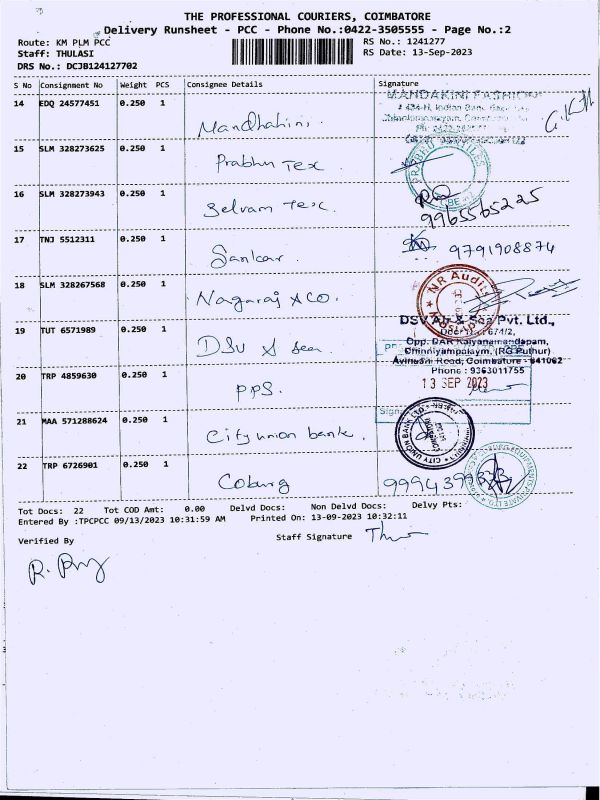 THE PROFESSIONAL COURIERS, COIMBATORE
Delivery Runsheet - PCC - Phone No.:0422-3505555 - Page No.:2
Route: KM PLM PCC
RS No.: 1241277
Staff: THULASI
RS Date: 13-Sep-2023
DRS No.: DCJB124127702
S No Consignment No Weight PCS Consignee Details Signature
14 EDQ 24577451 0.250 1 Mandhahini.
MANDAKINI FASHION
15 SLM 328273625 0.250 1 Prabhu Tex.
16 SLM 328273943 0.250 1 Selvam Tex. 9965565225
17 TNJ 5512311 0.250 1 Sankar. 9791908874
18 SLM 328267568 0.250 1 Nagaraj & Co.
NR Audit
19 TUT 6571989 0.250 1 DSV & Sea
DSV Air & Sea Pvt. Ltd.,
Opp. DAR Kalyanamandapam,
Chinniyampalayam, (RG Puthur)
Avinashi Road, Coimbatore - 641062
Phone : 9363011755
20 TRP 4859630 0.250 1 PPS.
13 SEP 2023
21 MAA 571288624 0.250 1 City union bank.
CITY UNION BANK LTD.
22 TRP 6726901 0.250 1 Coburg
Tot Docs: 22 Tot COD Amt: 0.00 Delvd Docs: Non Delvd Docs: Delvy Pts:
Entered By :TPCPCC 09/13/2023 10:31:59 AM Printed On: 13-09-2023 10:32:11
Verified By
Staff Signature